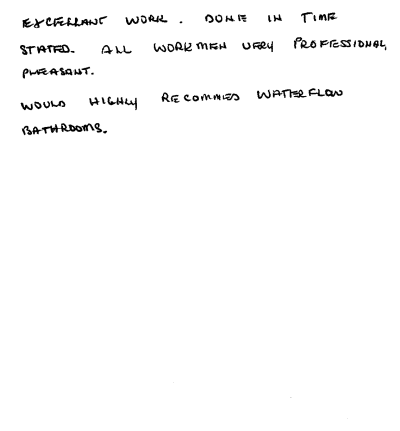 EXCELLANT WORK. DONE IN TIME
STATED. ALL WORKMEN VERY PROFESSIONAL,
PLEASANT.
WOULD HIGHLY RECOMMED WATERFLOW
BATHROOMS.